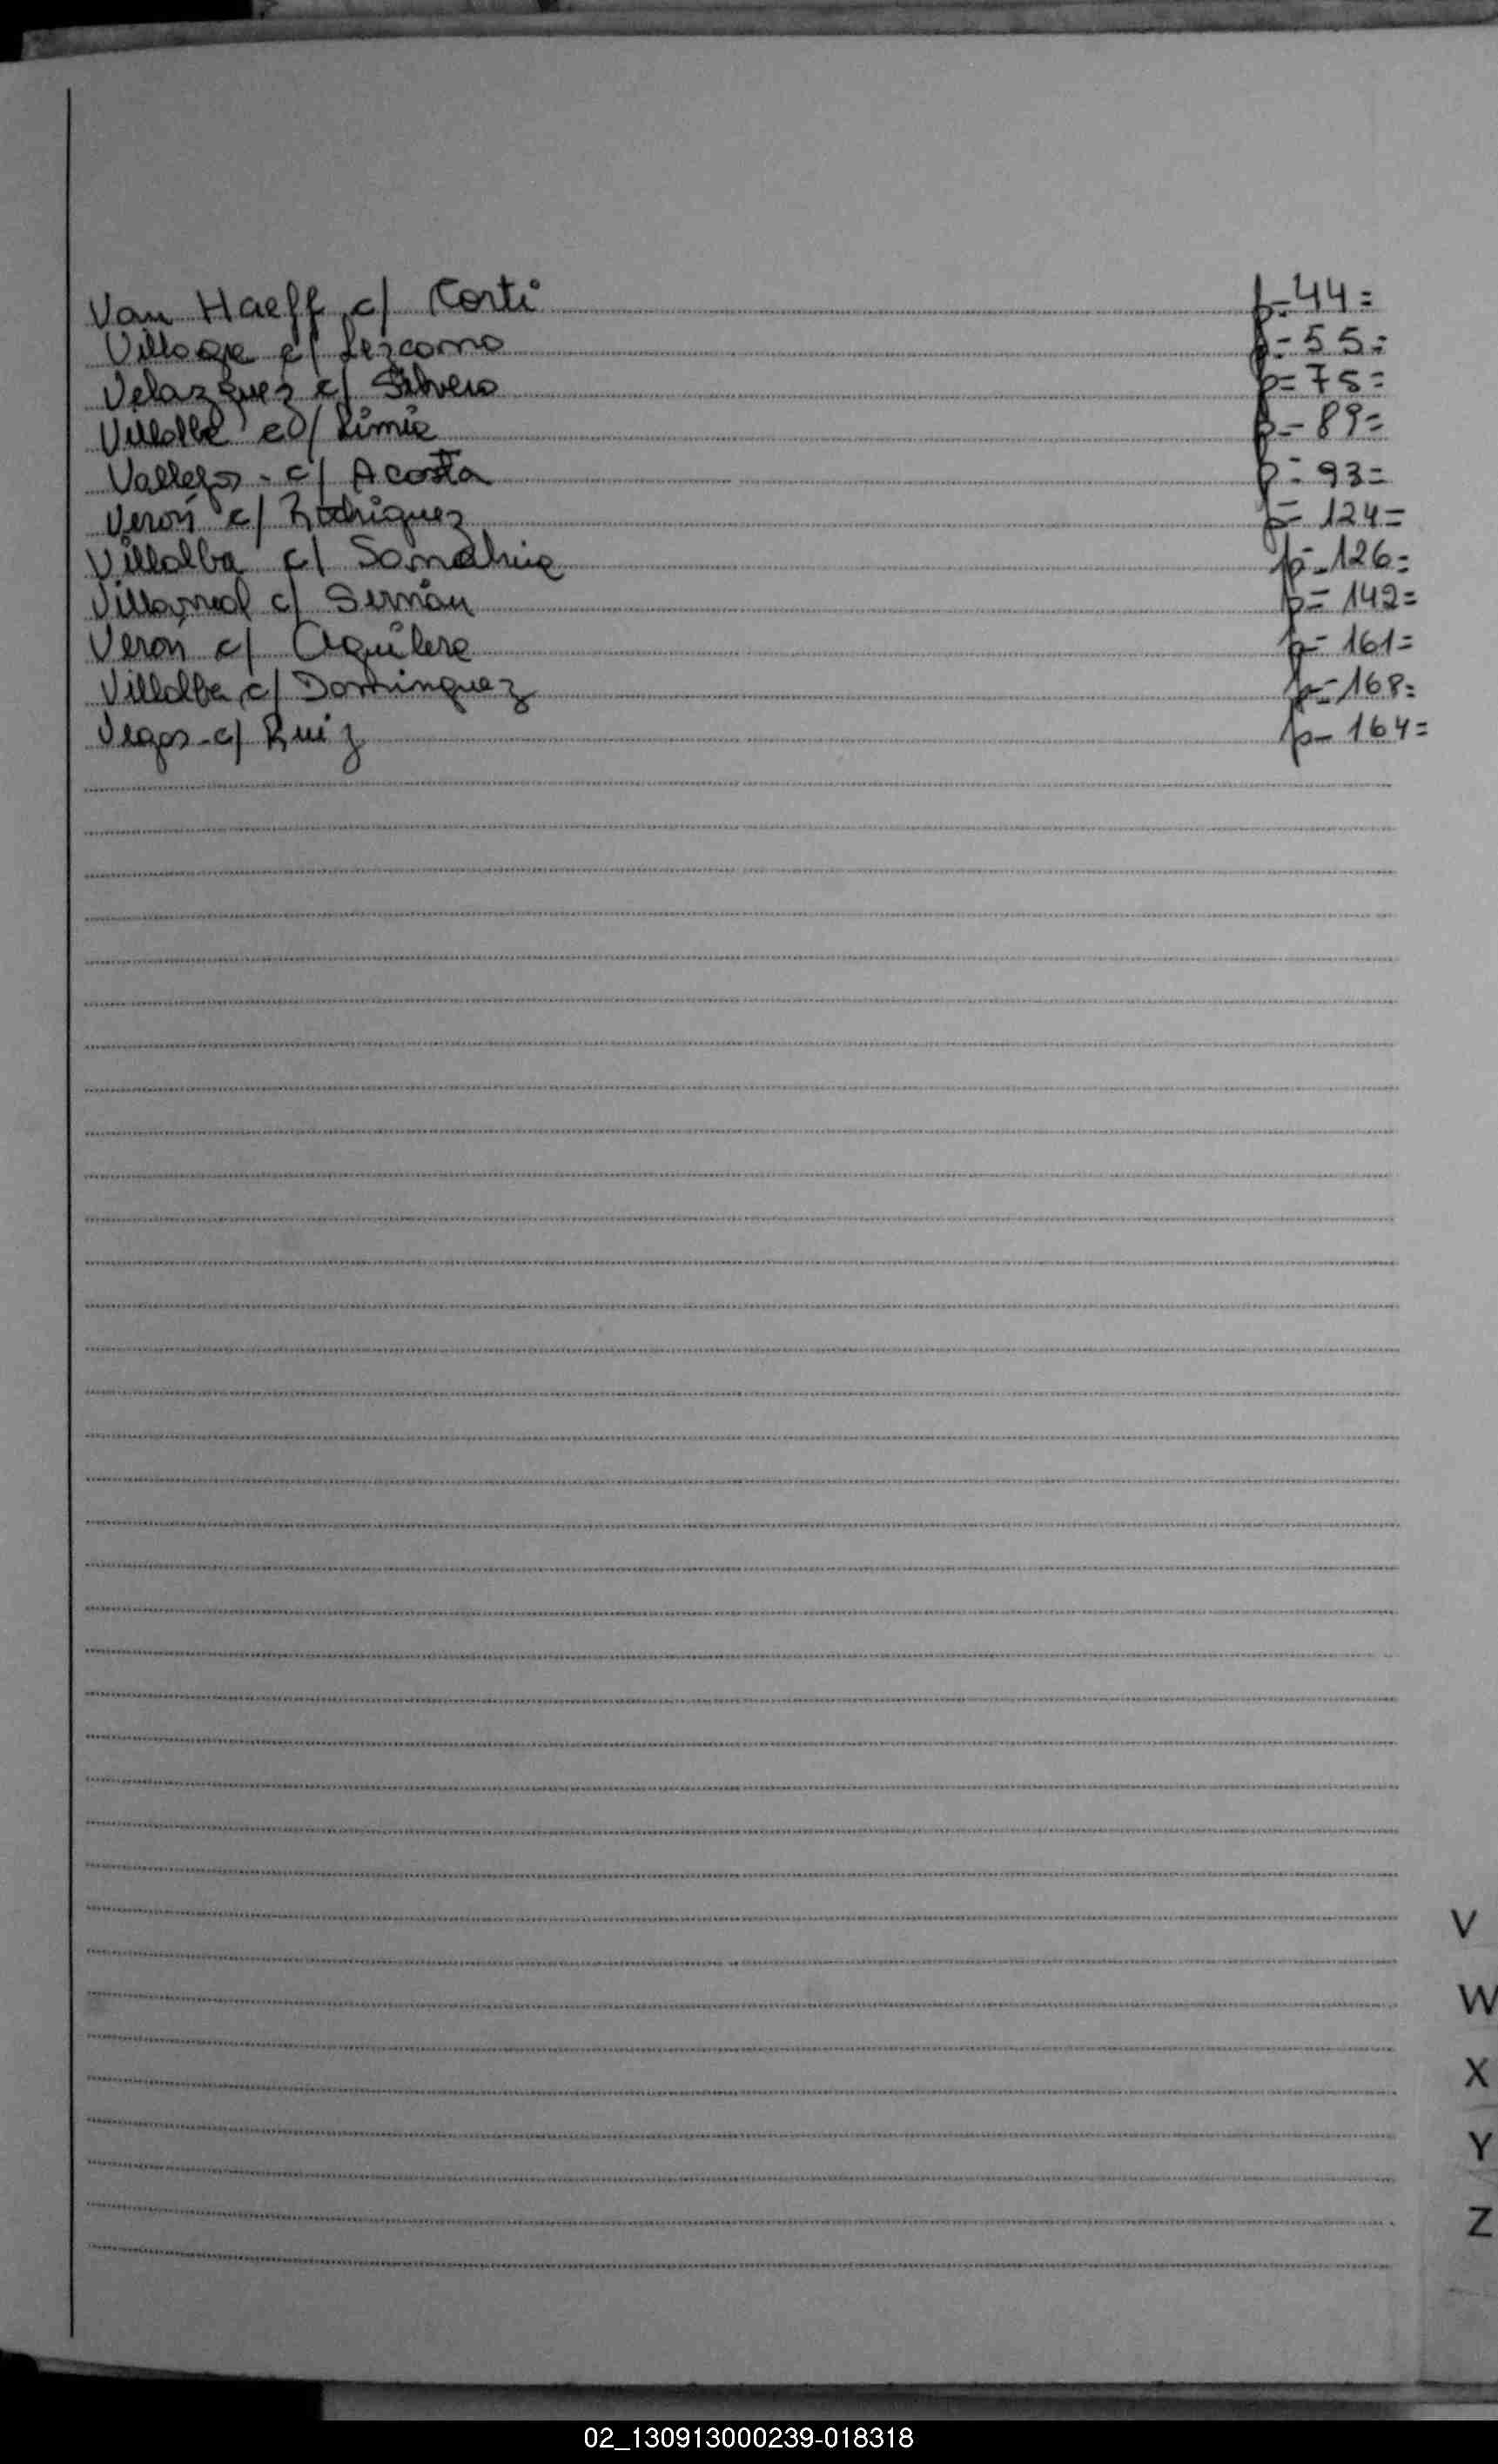 Van Haeff c/ Corti p-44=
c/ Lezcano p=55=
Velazquez c/ Silvero p=75=
Villalba c/ p-89=
Vallejos - c/ Acosta p=93=
Verón c/ Rodriguez p=124=
Villalba c/ p-126=
Villarreal c/ p=142=
Verón c/ Aguilera p-161=
Villalba c/ Dominguez p=168=
Vegas - c/ Ruiz p-164=
V
W
X
Y
Z
02_130913000239-018318